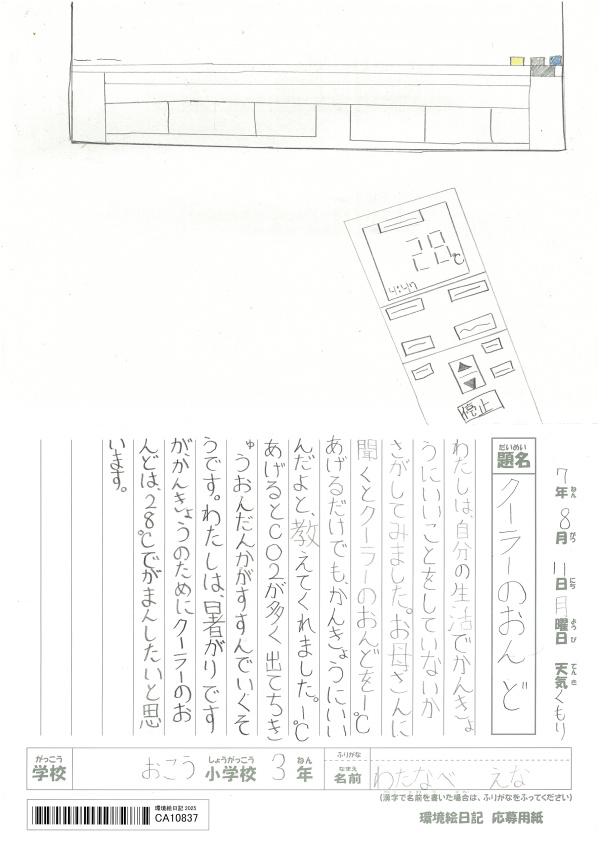 28℃
4:47
停止
7年 8月 11日 月曜日 天気 くもり
ねん がつ にち ようび てんき
だいめい
題名
クーラーのおんど
わたしは、自分の生活でかんきょ
うにいいことをしていないか
さがしてみました。お母さんに
聞くとクーラーのおんどを1℃
あげるだけでも、かんきょうにいい
んだよと、教えてくれました。1℃
あげるとCO2が多く出てちき
ゅうおんだんかがすすんでいくそ
うです。わたしは、暑がりです
がかんきょうのためにクーラーのお
んどは、28℃でがまんしたいと思
います。
がっこう
学校
おこう
しょうがっこう
小学校
3
ねん
年
ふりがな
なまえ
名前
わたなべ えな
(漢字で名前を書いた場合は、ふりがなをふってください)
環境絵日記 2025
CA10837
環境絵日記 応募用紙